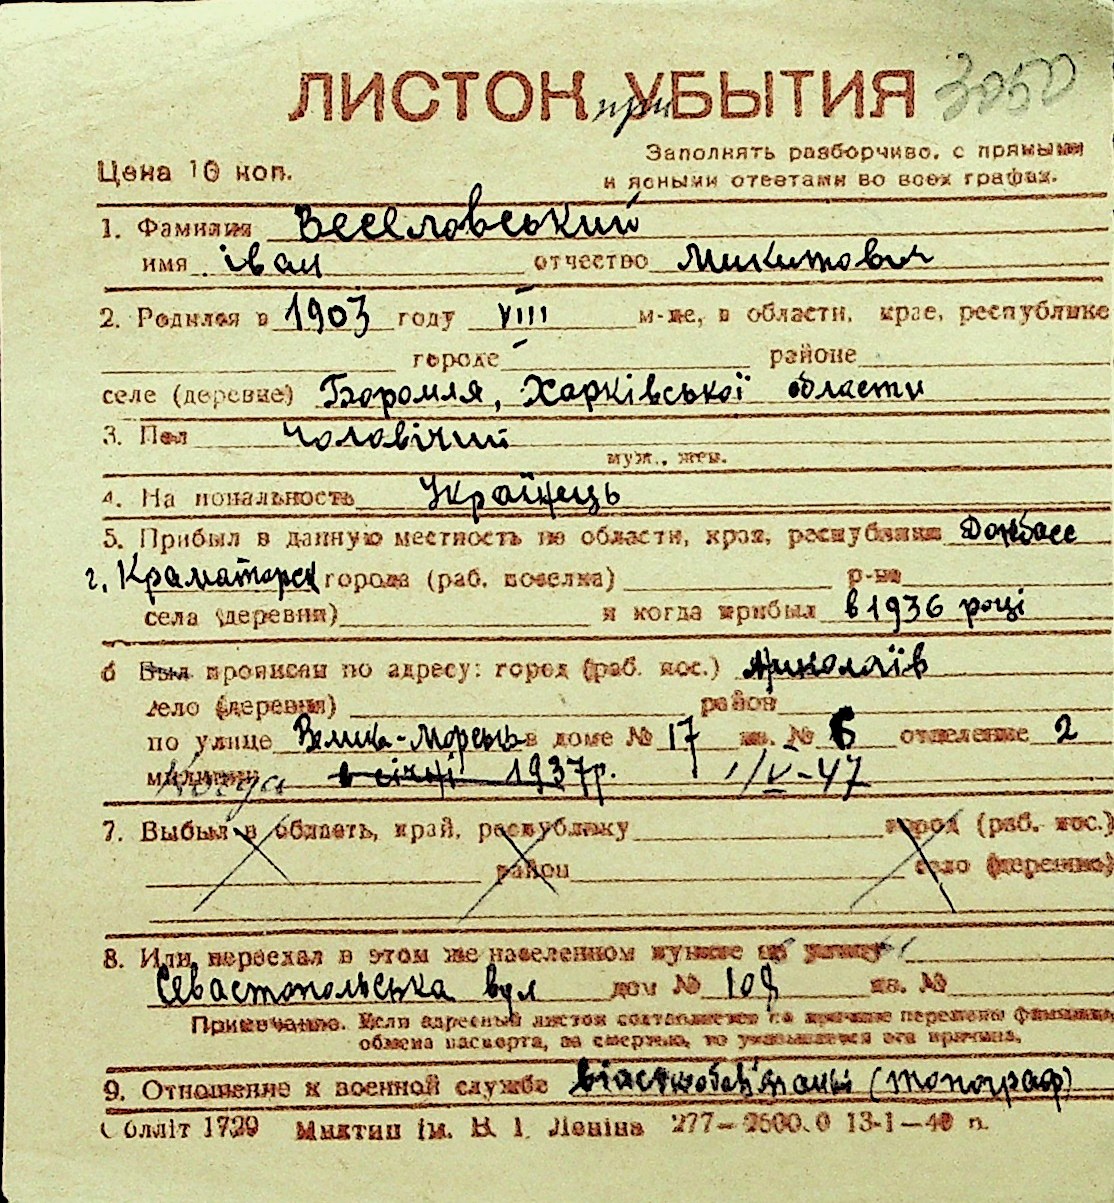 ЛИСТОК при УБЫТИЯ 3050
Цена 10 коп.
Заполнять разборчиво, с прямыми
и ясными ответами во всех графах.
1. Фамилия Веселовський
имя іван отчество Микитович
2. Родился в 1903 году VIII м-це, в области, крае, республике
городе районе
селе (деревне) Боромля, Харківської области
3. Пол Чоловічий
муж., жен.
4. Национальность Українець
5. Прибыл в данную местность из области, края, республики Донбасс
г. Краматорск города (раб. поселка) р-на
села (деревни) и когда прибыл в 1936 році
6 Был прописан по адресу: город (раб. пос.) Николаїв
село (деревня) район
по улице в доме № 17 кв. № 6 отделение 2
милиции Когда в січні 1937р. 1/V-47
7. Выбыл в область, край, республику город (раб. пос.)
район село (деревню)
8. Или переехал в этом же населенном пункте по улице
Севастопольська вул дом № 109 кв. №
Примечание. Если адресный листок составляется по причине перемены фамилии,
обмена паспорта, за смертью, то указывается эта причина.
9. Отношение к военной службе (топограф)
Обліт 1729 Миктип ім. В. І. Леніна 277—2500.0 13-1—40 р.